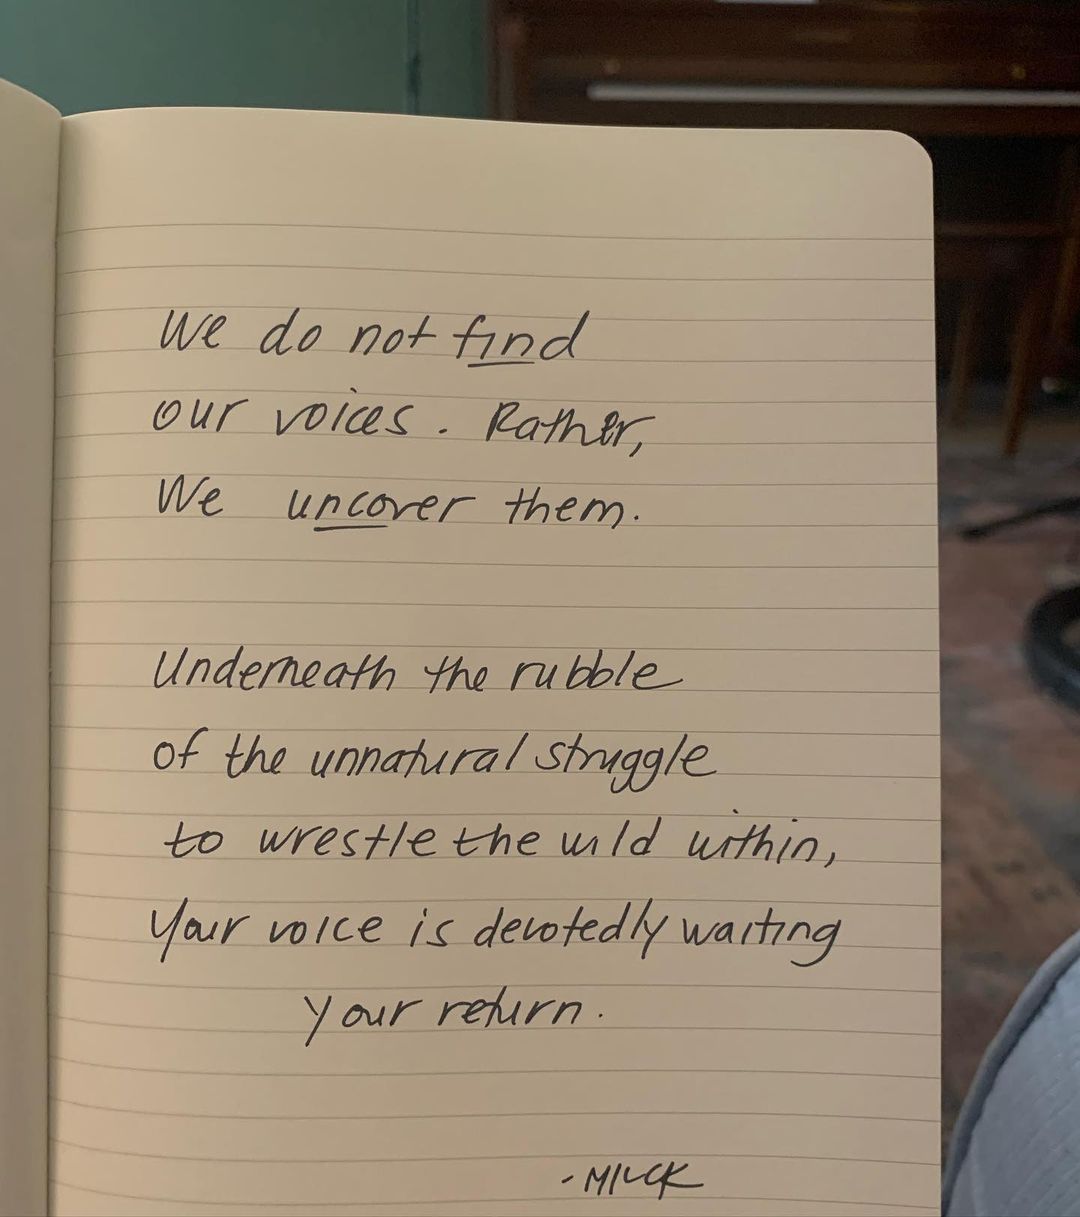 We do not find
our voices. Rather,
We uncover them.
Underneath the rubble
of the unnatural struggle
to wrestle the wild within,
Your voice is devotedly waiting
your return.
-MILCK